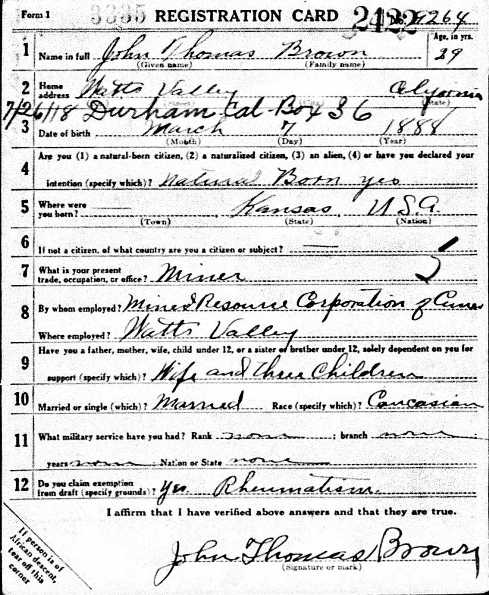 Form 1 3335 REGISTRATION CARD 2422 No. 264
1 Name in full John Thomas Brown Age, in yrs. 29
(Given name) (Family name)
2 Home address Watts Valley California
(State)
7/26/18 Durham Cal- Box 36
3 Date of birth March 7 1888
(Month) (Day) (Year)
4 Are you (1) a natural-born citizen, (2) a naturalized citizen, (3) an alien, (4) or have you declared your
intention (specify which)? Natural Born yes
5 Where were you born? Kansas, U.S.A.
(Town) (State) (Nation)
6 If not a citizen, of what country are you a citizen or subject?
7 What is your present trade, occupation, or office? Miner
8 By whom employed? Resource Corporation of
Where employed? Watts Valley
9 Have you a father, mother, wife, child under 12, or a sister or brother under 12, solely dependent on you for
support (specify which)? Wife and three Children
10 Married or single (which)? Married Race (specify which)? Caucasian
11 What military service have you had? Rank none ; branch none ;
years none ; Nation or State none
12 Do you claim exemption from draft (specify grounds)? Yes. Rheumatism.
I affirm that I have verified above answers and that they are true.
John Thomas Brown
(Signature or mark)
If person is of
African descent,
tear off this
corner